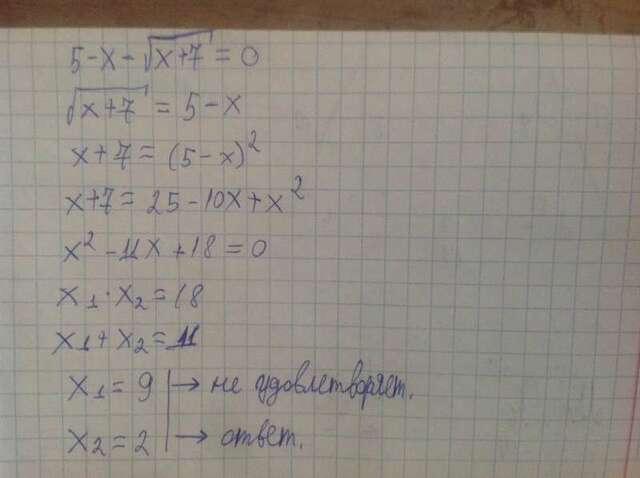 5-x-√x+7=0
√x+7=5-x
x+7=(5-x)²
x+7=25-10x+x²
x²-11x+18=0
x₁·x₂=18
x₁+x₂=11
x₁=9 | → не удовлетворяет.
x₂=2 | → ответ.